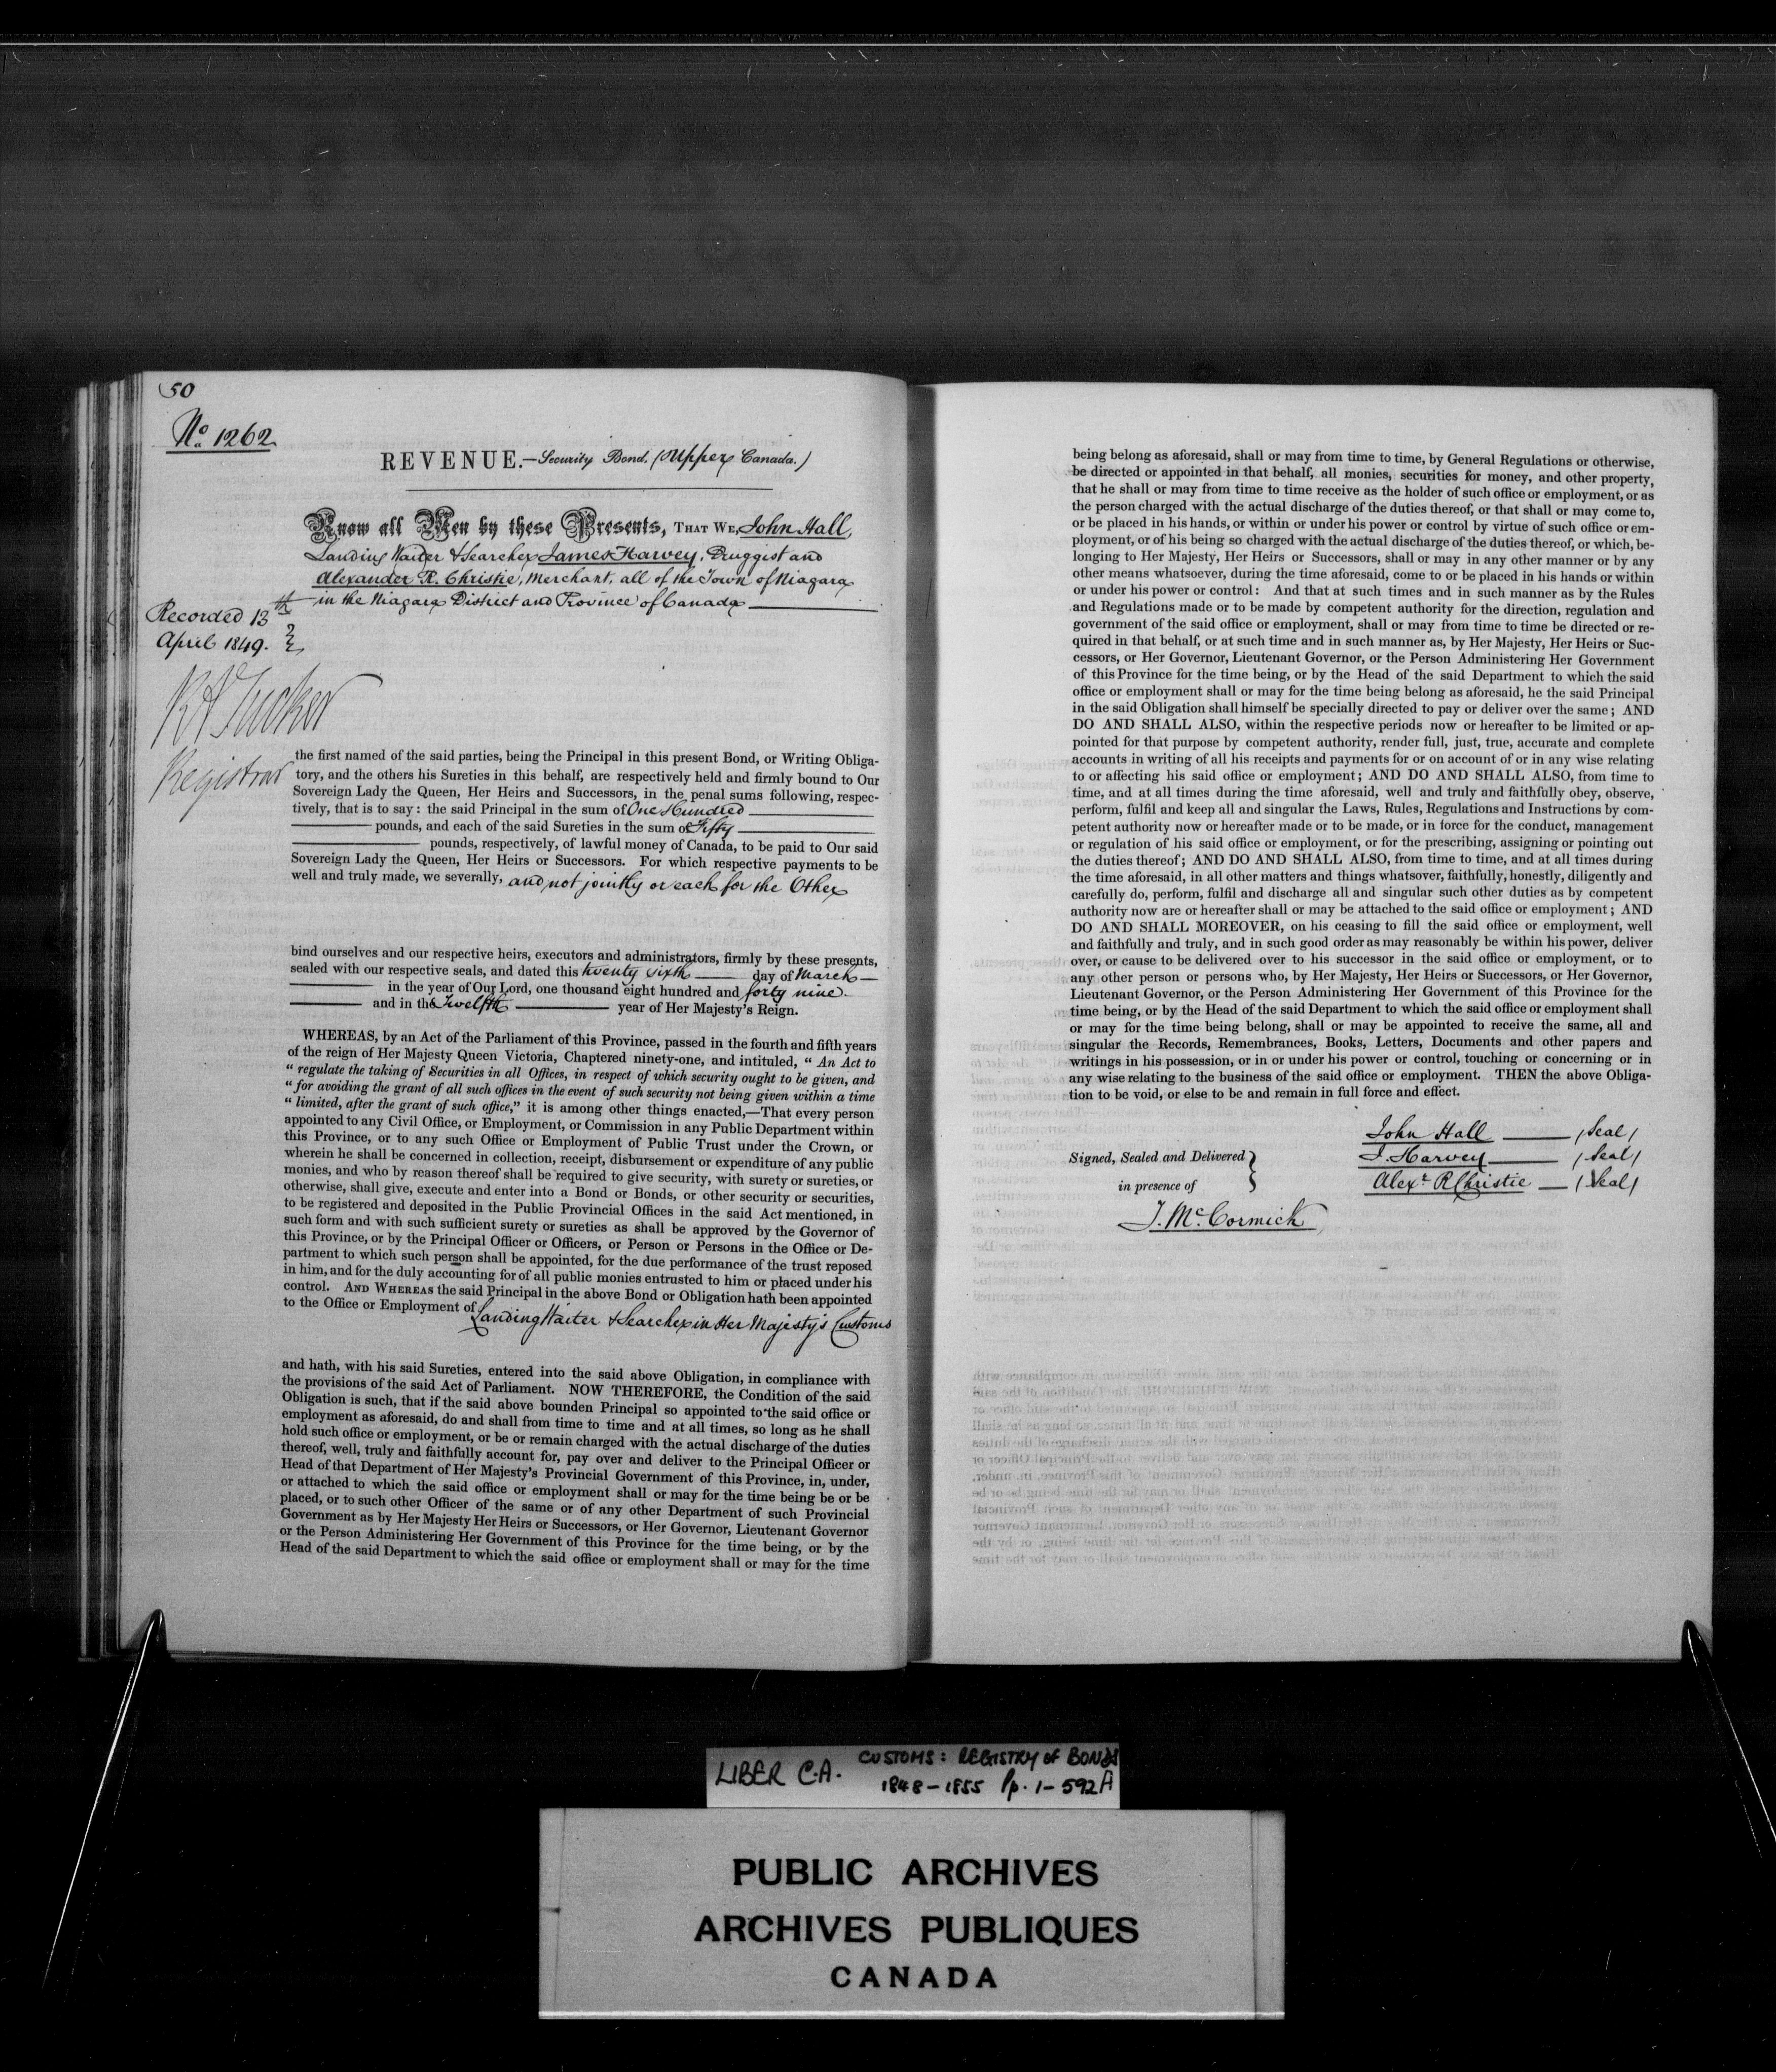 50
No. 1262
REVENUE.—Security Bond. (Upper Canada.)
Know all Men by these Presents, THAT WE, John Hall,
Landing Waiter & Searcher James Harvey, Druggist and
Alexander R. Christie, Merchant, all of the Town of Niagara
in the Niagara District and Province of Canada
Recorded 13th
April 1849.
R A Tucker
Registrar
the first named of the said parties, being the Principal in this present Bond, or Writing Obliga-
tory, and the others his Sureties in this behalf, are respectively held and firmly bound to Our
Sovereign Lady the Queen, Her Heirs and Successors, in the penal sums following, respec-
tively, that is to say: the said Principal in the sum of One Hundred
pounds, and each of the said Sureties in the sum of Fifty
pounds, respectively, of lawful money of Canada, to be paid to Our said
Sovereign Lady the Queen, Her Heirs or Successors. For which respective payments to be
well and truly made, we severally, and not jointly or each for the Other
bind ourselves and our respective heirs, executors and administrators, firmly by these presents,
sealed with our respective seals, and dated this twenty sixth day of March
in the year of Our Lord, one thousand eight hundred and forty nine.
and in the Twelfth year of Her Majesty's Reign.
WHEREAS, by an Act of the Parliament of this Province, passed in the fourth and fifth years
of the reign of Her Majesty Queen Victoria, Chaptered ninety-one, and intituled, " An Act to
" regulate the taking of Securities in all Offices, in respect of which security ought to be given, and
" for avoiding the grant of all such offices in the event of such security not being given within a time
" limited, after the grant of such office," it is among other things enacted,—That every person
appointed to any Civil Office, or Employment, or Commission in any Public Department within
this Province, or to any such Office or Employment of Public Trust under the Crown, or
wherein he shall be concerned in collection, receipt, disbursement or expenditure of any public
monies, and who by reason thereof shall be required to give security, with surety or sureties, or
otherwise, shall give, execute and enter into a Bond or Bonds, or other security or securities,
to be registered and deposited in the Public Provincial Offices in the said Act mentioned, in
such form and with such sufficient surety or sureties as shall be approved by the Governor of
this Province, or by the Principal Officer or Officers, or Person or Persons in the Office or De-
partment to which such person shall be appointed, for the due performance of the trust reposed
in him, and for the duly accounting for of all public monies entrusted to him or placed under his
control. AND WHEREAS the said Principal in the above Bond or Obligation hath been appointed
to the Office or Employment of Landing Waiter & Searcher in Her Majesty's Customs
and hath, with his said Sureties, entered into the said above Obligation, in compliance with
the provisions of the said Act of Parliament. NOW THEREFORE, the Condition of the said
Obligation is such, that if the said above bounden Principal so appointed to the said office or
employment as aforesaid, do and shall from time to time and at all times, so long as he shall
hold such office or employment, or be or remain charged with the actual discharge of the duties
thereof, well, truly and faithfully account for, pay over and deliver to the Principal Officer or
Head of that Department of Her Majesty's Provincial Government of this Province, in, under,
or attached to which the said office or employment shall or may for the time being be or be
placed, or to such other Officer of the same or of any other Department of such Provincial
Government as by Her Majesty Her Heirs or Successors, or Her Governor, Lieutenant Governor
or the Person Administering Her Government of this Province for the time being, or by the
Head of the said Department to which the said office or employment shall or may for the time
being belong as aforesaid, shall or may from time to time, by General Regulations or otherwise,
be directed or appointed in that behalf, all monies, securities for money, and other property,
that he shall or may from time to time receive as the holder of such office or employment, or as
the person charged with the actual discharge of the duties thereof, or that shall or may come to,
or be placed in his hands, or within or under his power or control by virtue of such office or em-
ployment, or of his being so charged with the actual discharge of the duties thereof, or which, be-
longing to Her Majesty, Her Heirs or Successors, shall or may in any other manner or by any
other means whatsoever, during the time aforesaid, come to or be placed in his hands or within
or under his power or control: And that at such times and in such manner as by the Rules
and Regulations made or to be made by competent authority for the direction, regulation and
government of the said office or employment, shall or may from time to time be directed or re-
quired in that behalf, or at such time and in such manner as, by Her Majesty, Her Heirs or Suc-
cessors, or Her Governor, Lieutenant Governor, or the Person Administering Her Government
of this Province for the time being, or by the Head of the said Department to which the said
office or employment shall or may for the time being belong as aforesaid, he the said Principal
in the said Obligation shall himself be specially directed to pay or deliver over the same; AND
DO AND SHALL ALSO, within the respective periods now or hereafter to be limited or ap-
pointed for that purpose by competent authority, render full, just, true, accurate and complete
accounts in writing of all his receipts and payments for or on account of or in any wise relating
to or affecting his said office or employment; AND DO AND SHALL ALSO, from time to
time, and at all times during the time aforesaid, well and truly and faithfully obey, observe,
perform, fulfil and keep all and singular the Laws, Rules, Regulations and Instructions by com-
petent authority now or hereafter made or to be made, or in force for the conduct, management
or regulation of his said office or employment, or for the prescribing, assigning or pointing out
the duties thereof; AND DO AND SHALL ALSO, from time to time, and at all times during
the time aforesaid, in all other matters and things whatsoever, faithfully, honestly, diligently and
carefully do, perform, fulfil and discharge all and singular such other duties as by competent
authority now are or hereafter shall or may be attached to the said office or employment; AND
DO AND SHALL MOREOVER, on his ceasing to fill the said office or employment, well
and faithfully and truly, and in such good order as may reasonably be within his power, deliver
over, or cause to be delivered over to his successor in the said office or employment, or to
any other person or persons who, by Her Majesty, Her Heirs or Successors, or Her Governor,
Lieutenant Governor, or the Person Administering Her Government of this Province for the
time being, or by the Head of the said Department to which the said office or employment shall
or may for the time being belong, shall or may be appointed to receive the same, all and
singular the Records, Remembrances, Books, Letters, Documents and other papers and
writings in his possession, or in or under his power or control, touching or concerning or in
any wise relating to the business of the said office or employment. THEN the above Obliga-
tion to be void, or else to be and remain in full force and effect.
John Hall (Seal)
Signed, Sealed and Delivered J. Harvey (Seal)
in presence of Alexr. R Christie (Seal)
J. McCormick
LIBER C.A. CUSTOMS: REGISTRY OF BONDS
1848-1855 Pp. 1-592A
PUBLIC ARCHIVES
ARCHIVES PUBLIQUES
CANADA